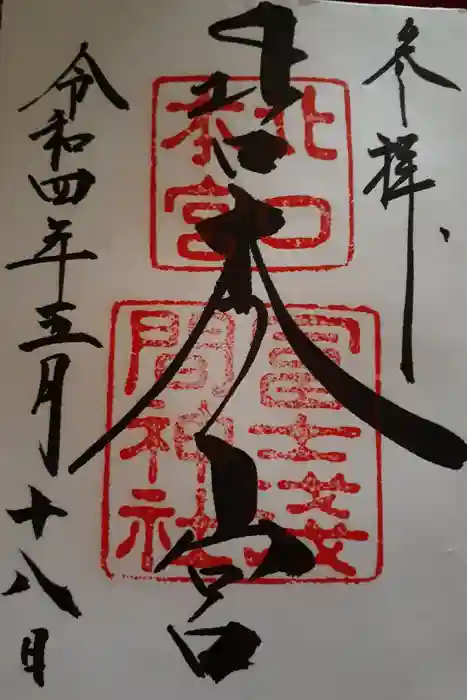 参拝
北口本宮
北口
本宮
冨士淺
間神社
令和四年五月十八日